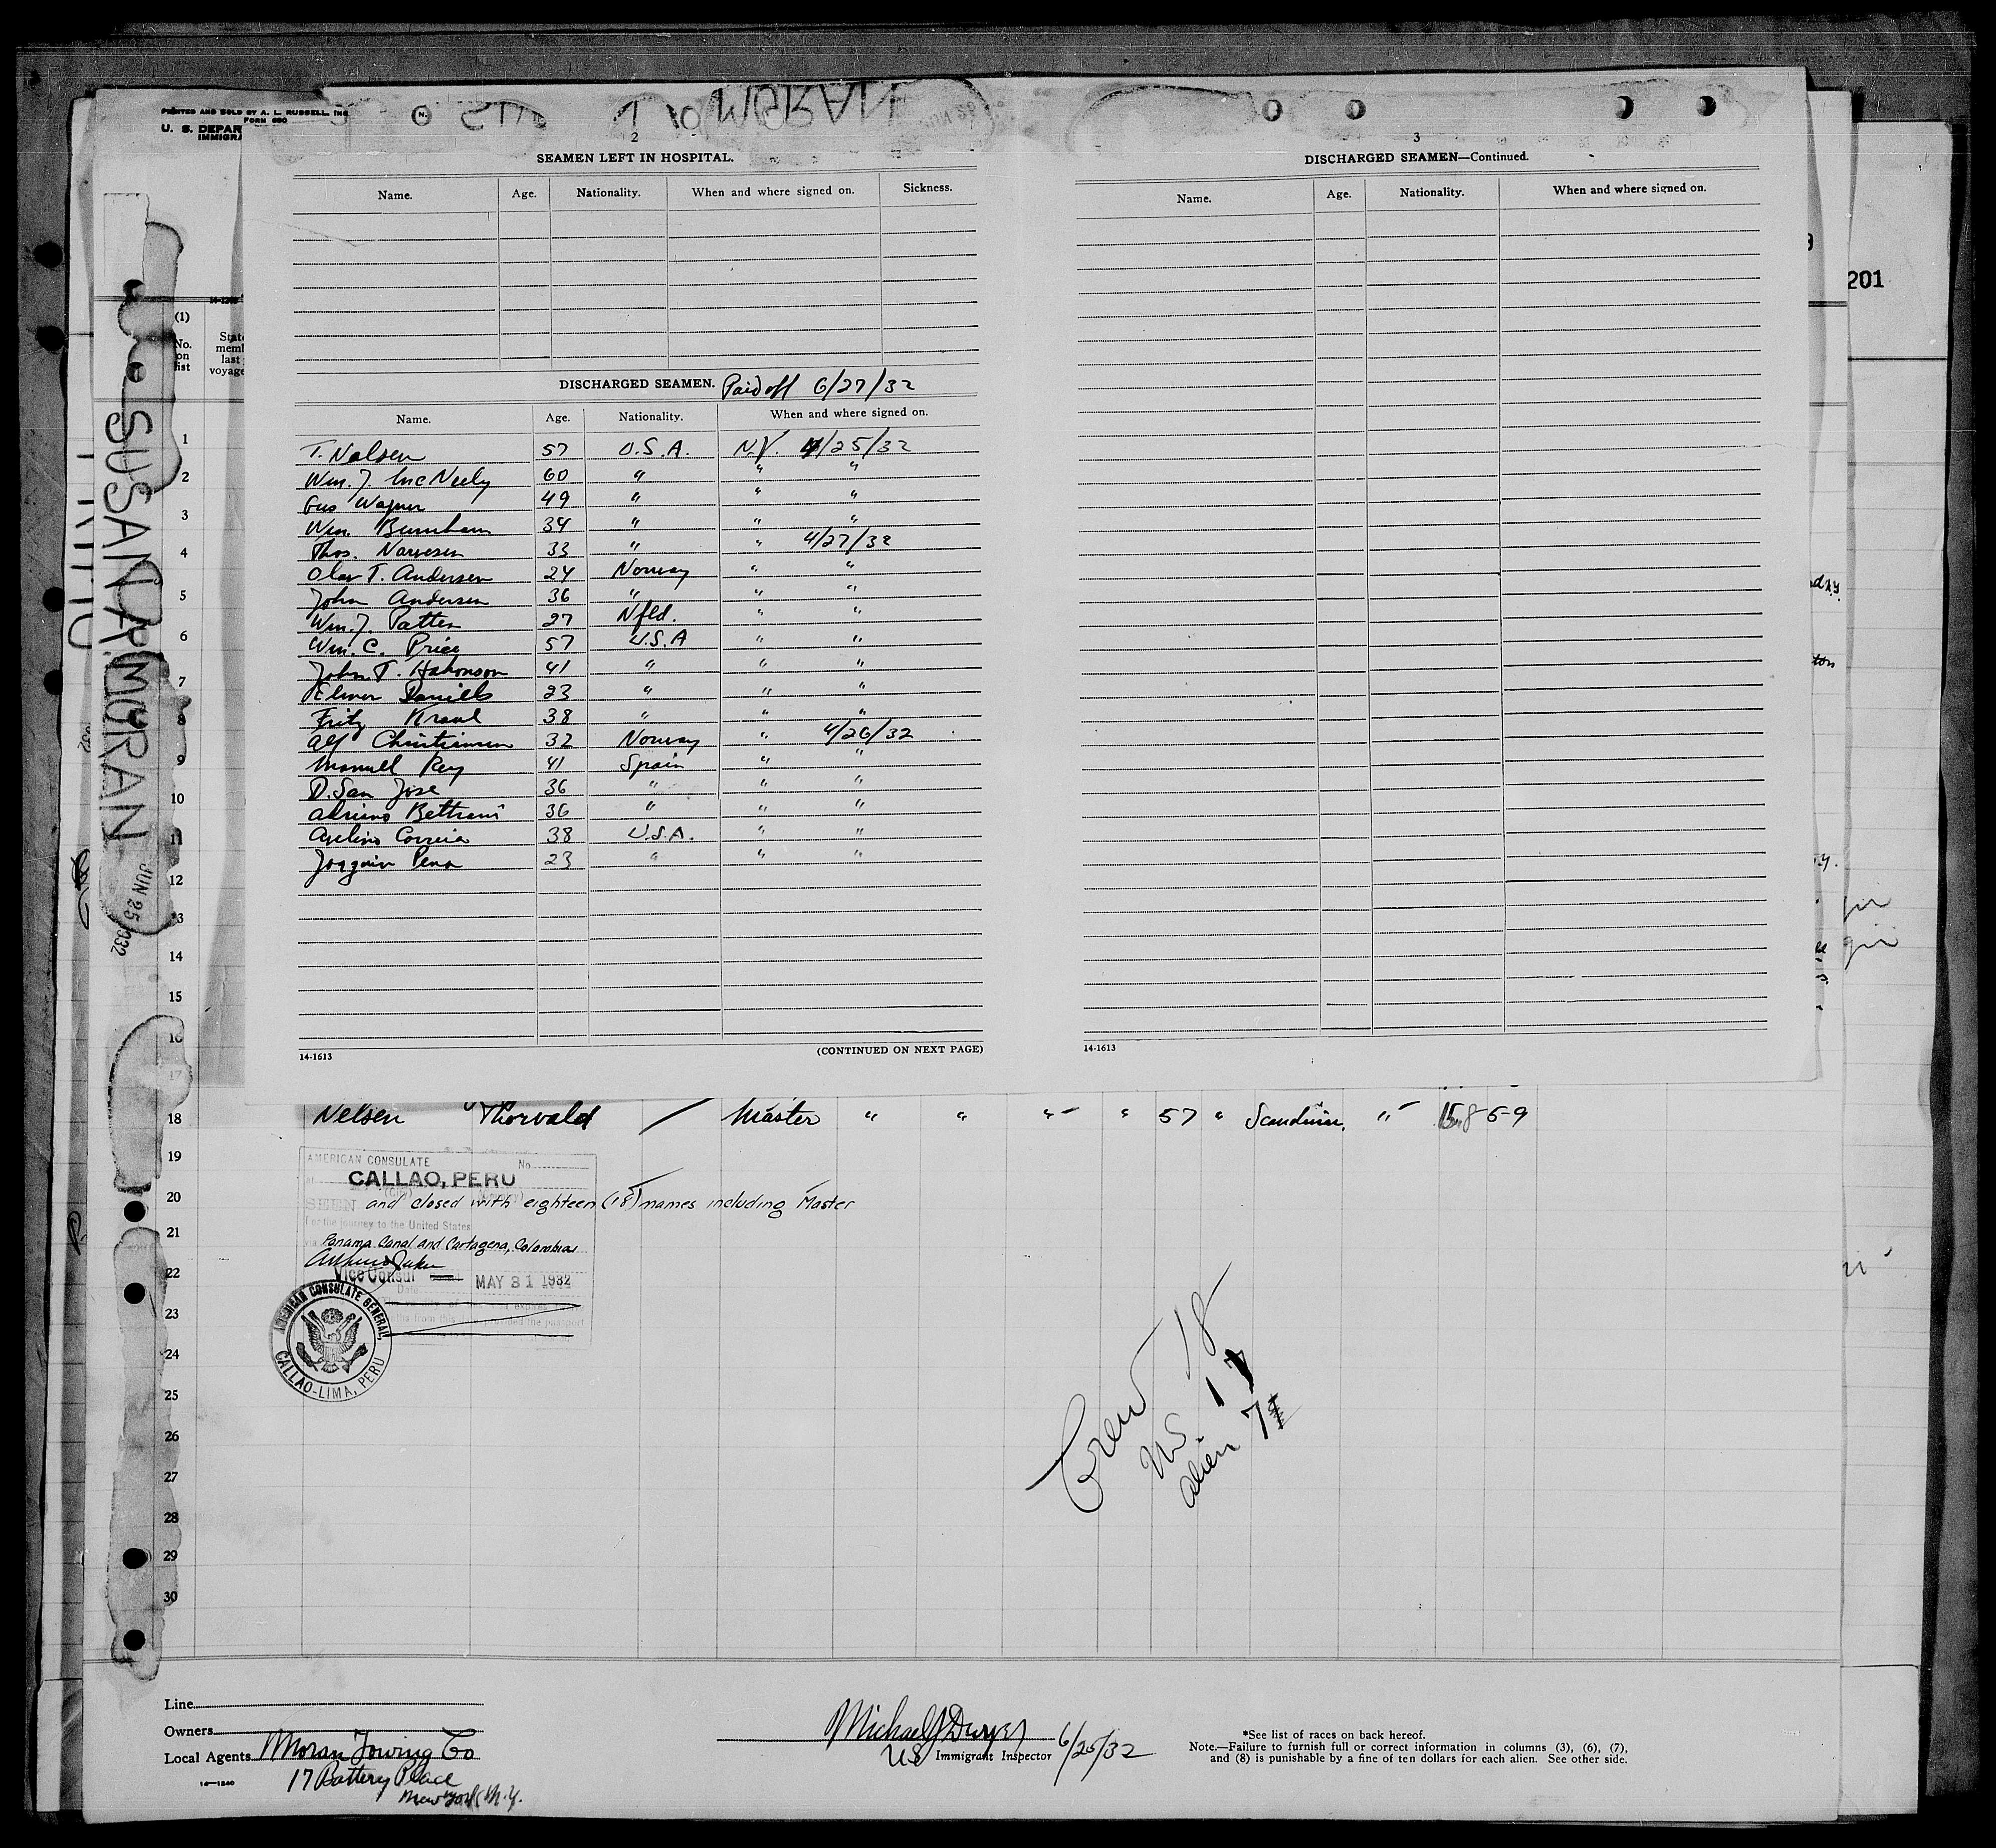 PRINTED AND SOLD BY A. L. RUSSELL, INC.
FORM 680
U. S. DEPAR
IMMIGRA
SUSAN A. MORAN
JUN 25 1932
201
14-1240
(1)
No. on list
State
memb
last
voyage
2
SEAMEN LEFT IN HOSPITAL.
Name. Age. Nationality. When and where signed on. Sickness.
DISCHARGED SEAMEN. Paid off 6/27/32
Name. Age. Nationality. When and where signed on.
T. Nelsen 57 U.S.A. N.Y. 4/25/32
Wm. J. McNeely 60 " " "
Gus Wagner 49 " " "
Wm. Burnham 34 " " "
Thos. Narvesen 33 " " 4/27/32
Olav T. Andersen 24 Norway " "
John Andersen 36 " " "
Wm. J. Patten 27 Nfld. " "
Wm. C. Price 57 U.S.A " "
John T. Hakonson 41 " " "
Elmer Daniells 23 " " "
Fritz Kraul 38 " " "
Alf Christiansen 32 Norway " 4/26/32
Manuel Rey 41 Spain " "
D. San Jose 36 " " "
Adriano Beltrami 36 " " "
Avelino Correia 38 U.S.A. " "
Joaquin Pena 23 " " "
14-1613 (CONTINUED ON NEXT PAGE)
3
DISCHARGED SEAMEN—Continued.
Name. Age. Nationality. When and where signed on.
14-1613
1
2
3
4
5
6
7
8
9
10
11
12
13
14
15
16
17
18 Nelsen Thorvald / Master " " " " 57 " Scandin. " 5-9
19
20
21
22
23
24
25
26
27
28
29
30
AMERICAN CONSULATE
No.
at CALLAO, PERU
SEEN and closed with eighteen (18) names including Master
For the journey to the United States
via Panama Canal and Cartagena, Colombia
Vice Consul MAY 31 1932
Date
AMERICAN CONSULATE GENERAL,
CALLAO-LIMA, PERU
Crew 18
US 17
alien 7
Line
Owners
Local Agents Moran Towing Co
17 Battery Place
New York N.Y.
16—1240
Michael J Dwyer
US Immigrant Inspector 6/25/32
*See list of races on back hereof.
Note.—Failure to furnish full or correct information in columns (3), (6), (7),
and (8) is punishable by a fine of ten dollars for each alien. See other side.